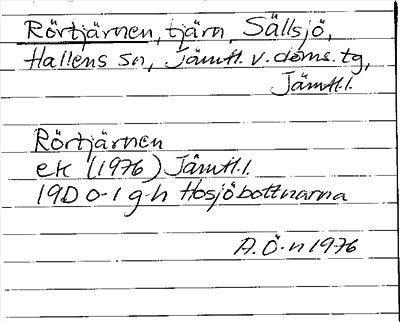 Rörtjärnen, tjärn, Sällsjö,
Hallens sn, Jämtl. v. doms. tg,
Jämtl.l.
Rörtjärnen
ek (1976) Jämtl.l.
19D 0-1 g-h Hosjöbottnarna
A. Ö-n 1976